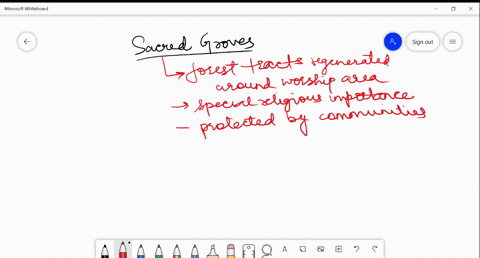 Microsoft Whiteboard
Sign out
Sacred Groves
→ forest tracts regenerated
around worship area
→ special religious importance
– protected by communities